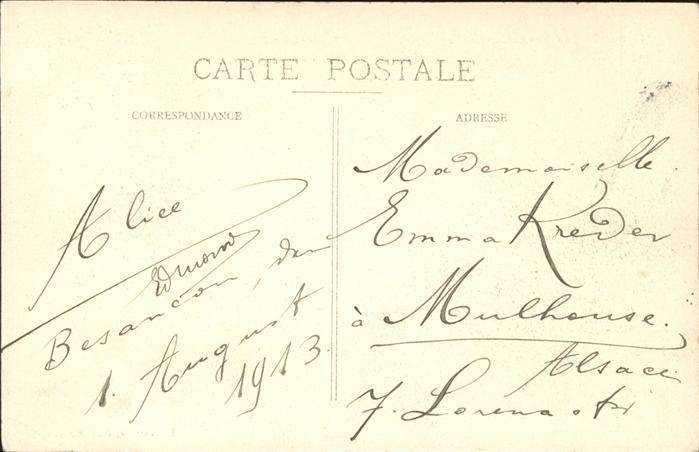 CARTE POSTALE
CORRESPONDANCE
ADRESSE
Alice
Edmond
Besancon, den
1. August
1913.
Mademoiselle
Emma Kreder
à Mulhouse.
Alsace
7. Lorena